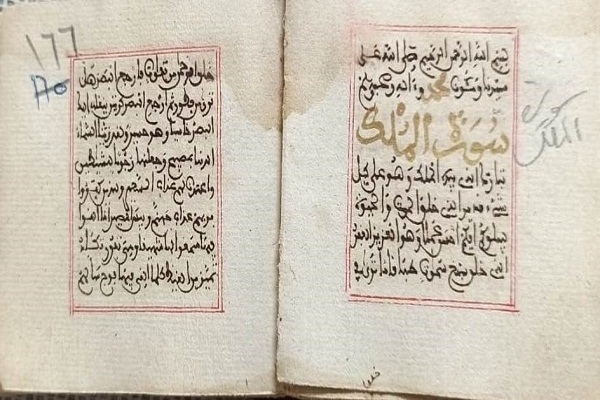 بسم الله الرحمن الرحيم صلى الله على
سيدنا ومولانا محمد وءاله وصحبه
سورة الملك
تبارك الذي بيده الملك وهو على كل
شيء قدير الذي خلق الموت والحيوة
ليبلوكم أيكم أحسن عملا وهو العزيز الغفور
الذي خلق سبع سموت طباقا ما ترى في
خلق
سورة
الملك
١٦٦
خلق الرحمن من تفوت فارجع البصر هل
ترى من فطور ثم ارجع البصر كرتين ينقلب إليك
البصر خاسئا وهو حسير ولقد زينا السماء
الدنيا بمصبيح وجعلنها رجوما للشيطين
واعتدنا لهم عذاب السعير وللذين كفروا
بربهم عذاب جهنم وبيس المصير إذا ألقوا
فيها سمعوا لها شهيقا وهي تفور تكاد
تميز من الغيظ كلما ألقي فيها فوج سألهم